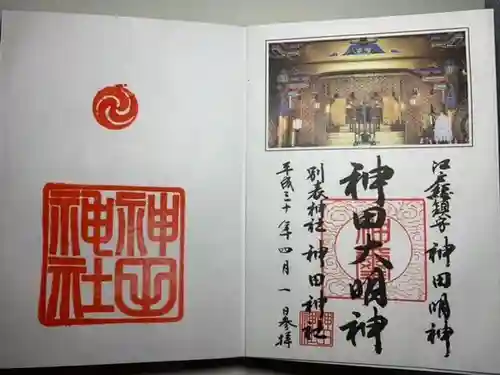 江戸総鎮守 神田明神
神田大明神
別表神社 神田神社
平成三十年四月一日参拝
神田
神社